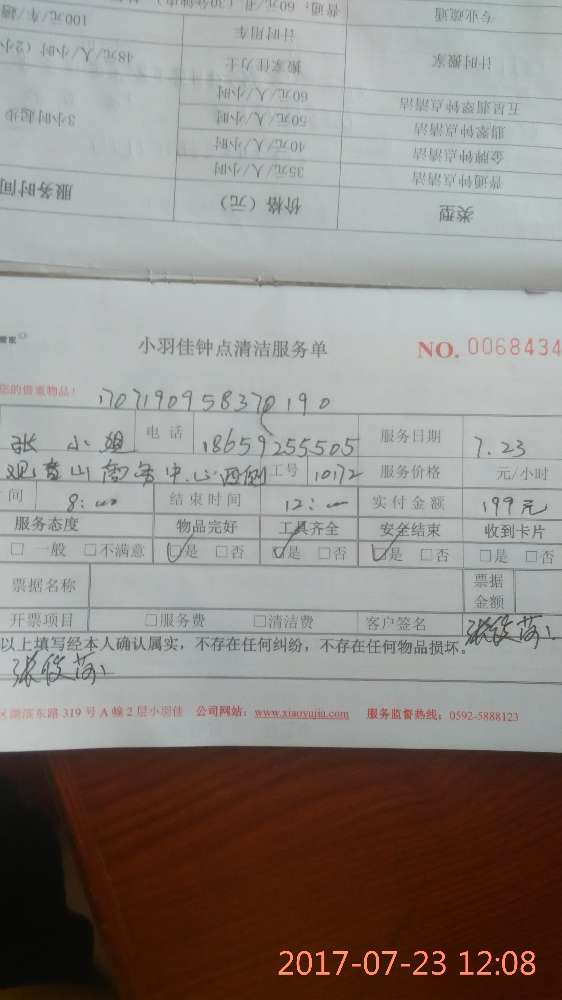 专业疏通 普通：60元/
计时用车 100元/车/趟
计时搬家 搬家佳力士 48元/人/小时（2小
五星翡翠钟点清洁 60元/人/小时
翡翠钟点清洁 50元/人/小时 3小时起步
金牌钟点清洁 40元/人/小时
普通钟点清洁 35元/人/小时
类型 价格（元） 服务时间
管家
小羽佳钟点清洁服务单 NO. 0068434
您的贵重物品！ 1707190958370190
张小姐 电话 18659255505 服务日期 7.23
观音山商务中心西侧 工号 10172 服务价格 元/小时
间 8：00 结束时间 12：00 实付金额 199元
服务态度 物品完好 工具齐全 安全结束 收到卡片
□ 一般 □不满意 □是 □否 □是 □否 □是 □否 □是 □否
票据名称 票据金额
开票项目 □服务费 □清洁费 客户签名
以上填写经本人确认属实，不存在任何纠纷，不存在任何物品损坏。
区湖滨东路 319 号 A 幢 2 层小羽佳 公司网站：www.xiaoyujia.com 服务监督热线：0592-5888123
2017-07-23 12:08